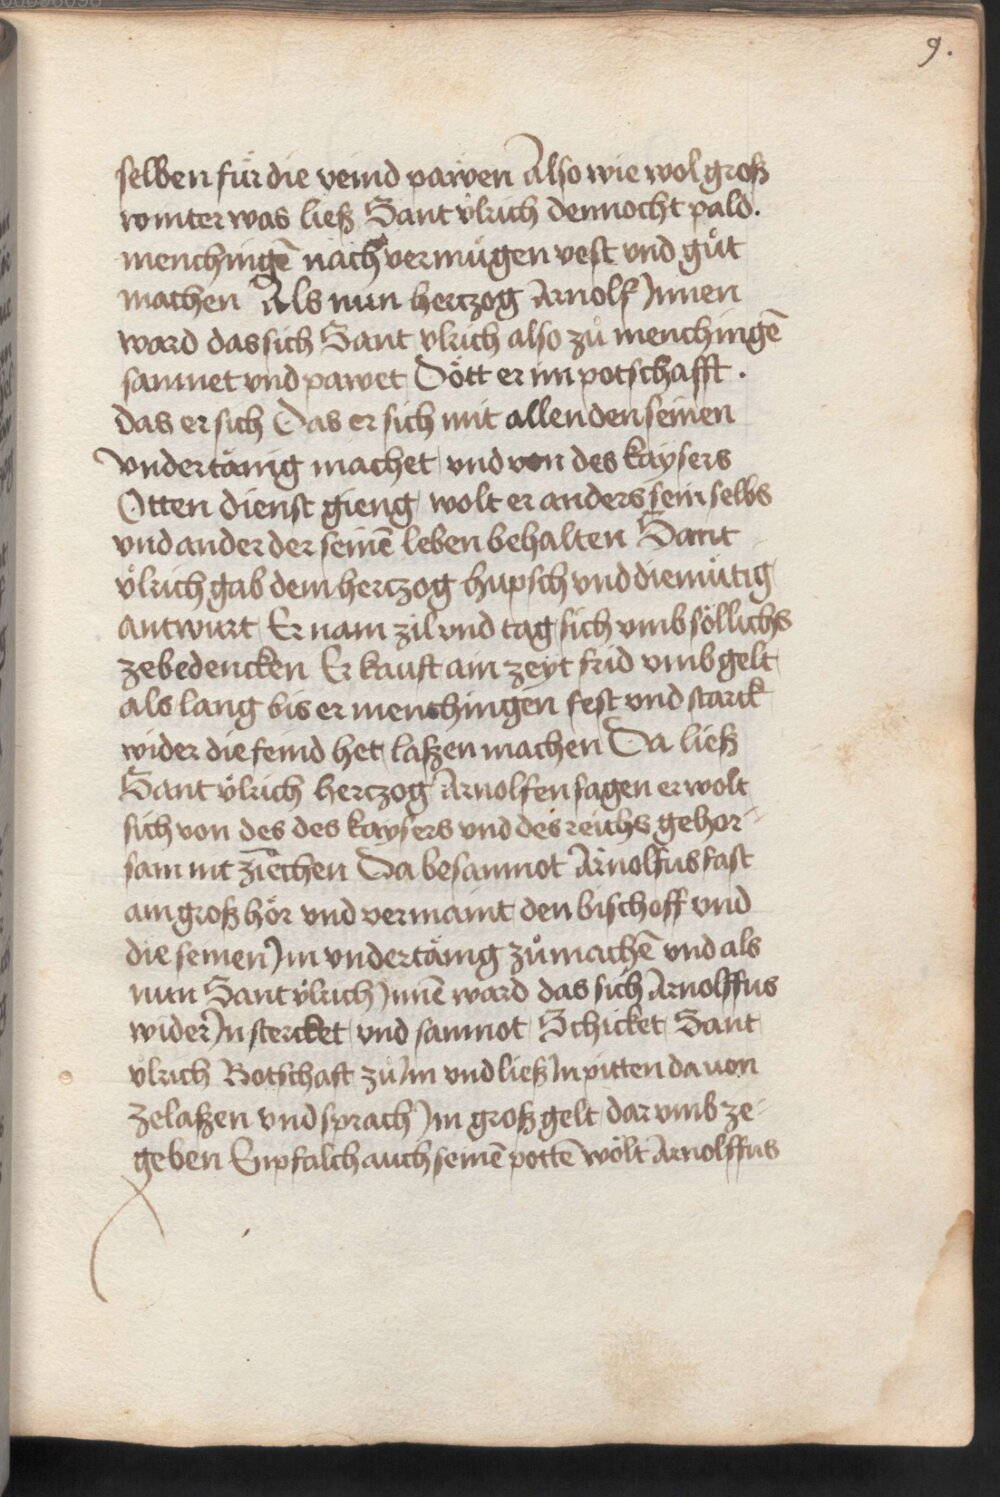 9.
selben für die veind pawen Also wie wol groß
winter was ließ Sant vlrich dennocht pald.
menchingē nach vermügen vest vnd gůt
machen Als nun hertzog Arnolf Jnnen
ward das sich Sant vlrich also zů menchingē
samnet vnd pawet Dött er im potschafft .
das er sich Das er sich mit allen den seinen
vndertänig machet vnd von des kaysers
Otten dienst gieng wolt er anders sein selbs
vnd ander der seinē leben behalten Sant
vlrich gab dem hertzog hupsch vnd diemütig
antwurt Er nam zil vnd tag sich vmb söllichs
zebedencken Er kauft ain zeyt frid vmb gelt
als lang bis er menchingen fest vnd starck
wider die feind het laßen machen Da ließ
Sant vlrich hertzog Arnolfen sagen er wolt
sich von des des kaysers vnd des reichs gehor-
sam nit ziechen Da besamnot Arnolfus fast
ain groß hör vnd vermaint den bischoff vnd
die seinen Jm vndertänig zůmachē vnd als
nun Sant vlrich Jnnē ward das sich Arnolffus
wider Jn stercket vnd samnot Schicket Sant
vlrich Botschaft zů Jm vnd ließ Jn pitten dauon
zelaßen vnd sprach Jm groß gelt dar vmb ze-
geben Enpfalch auch seinē pottē wölt Arnolffus